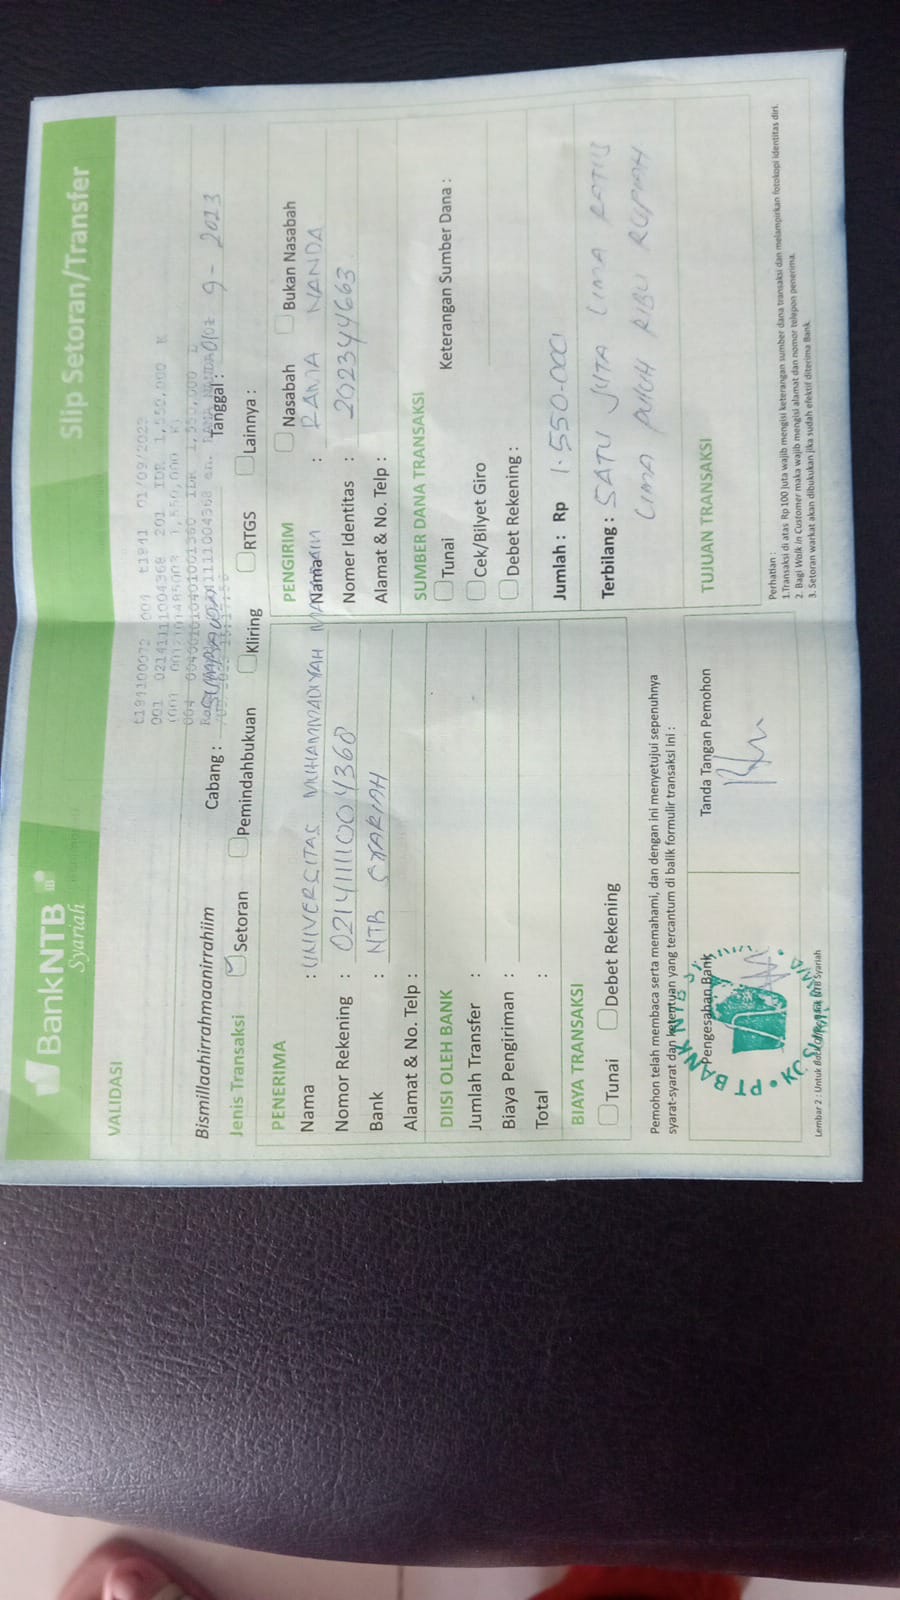 BankNTB
Syariah
Slip Setoran/Transfer
VALIDASI
t191100072 001 t1911 01/09/2023
001 0214111004368 201 IDR 1,550,000 K
Bismillaahirrahmaanirrahiim
Cabang :
Tanggal : 9 - 2023
Jenis Transaksi
Setoran
Pemindahbukuan
Kliring
RTGS
Lainnya :
PENERIMA
Nama : UNIVERSITAS MUHAMMADIYAH
Nomor Rekening :
Bank : NTB SYARIAH
Alamat & No. Telp :
PENGIRIM
Nasabah
Bukan Nasabah
Nama : RAMA NANDA
Nomer Identitas : 202344663
Alamat & No. Telp :
DIISI OLEH BANK
Jumlah Transfer :
Biaya Pengiriman :
Total :
SUMBER DANA TRANSAKSI
Tunai
Keterangan Sumber Dana :
Cek/Bilyet Giro
Debet Rekening :
BIAYA TRANSAKSI
Tunai
Debet Rekening
Jumlah : Rp 1.550.000
Terbilang : SATU JUTA LIMA RATUS
LIMA PULUH RIBU RUPIAH
Pemohon telah membaca serta memahami, dan dengan ini menyetujui sepenuhnya
syarat-syarat dan ketentuan yang tercantum di balik formulir transaksi ini :
Pengesahan Bank
Tanda Tangan Pemohon
TUJUAN TRANSAKSI
PT BANK NTB
Perhatian :
1.Transaksi di atas Rp 100 juta wajib mengisi keterangan sumber dana transaksi dan melampirkan fotokopi identitas diri.
2. Bagi Walk In Customer maka wajib mengisi alamat dan nomor telepon penerima.
3. Setoran warkat akan dibukukan jika sudah efektif diterima Bank
Lembar 2 : Untuk NTB Syariah